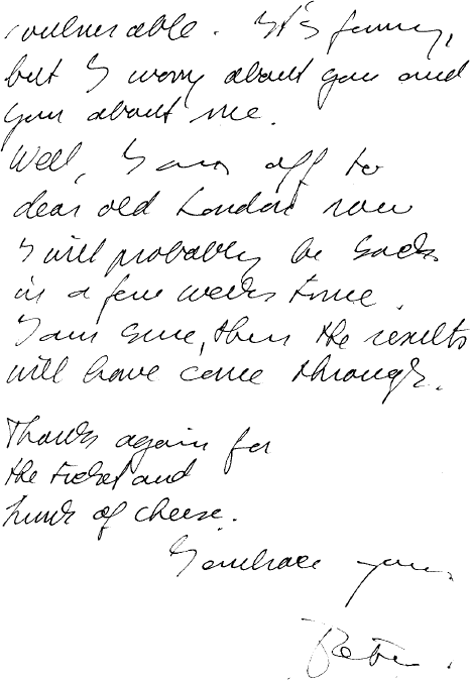 vulnerable. It's funny,
but I worry about you and
you about me.
Well, I am off to
dear old London now
I will probably be back
in a few weeks time.
I am sure, then the results
will have come through.
Thanks again for
the ticket and
hunk of cheese.
I embrace you,